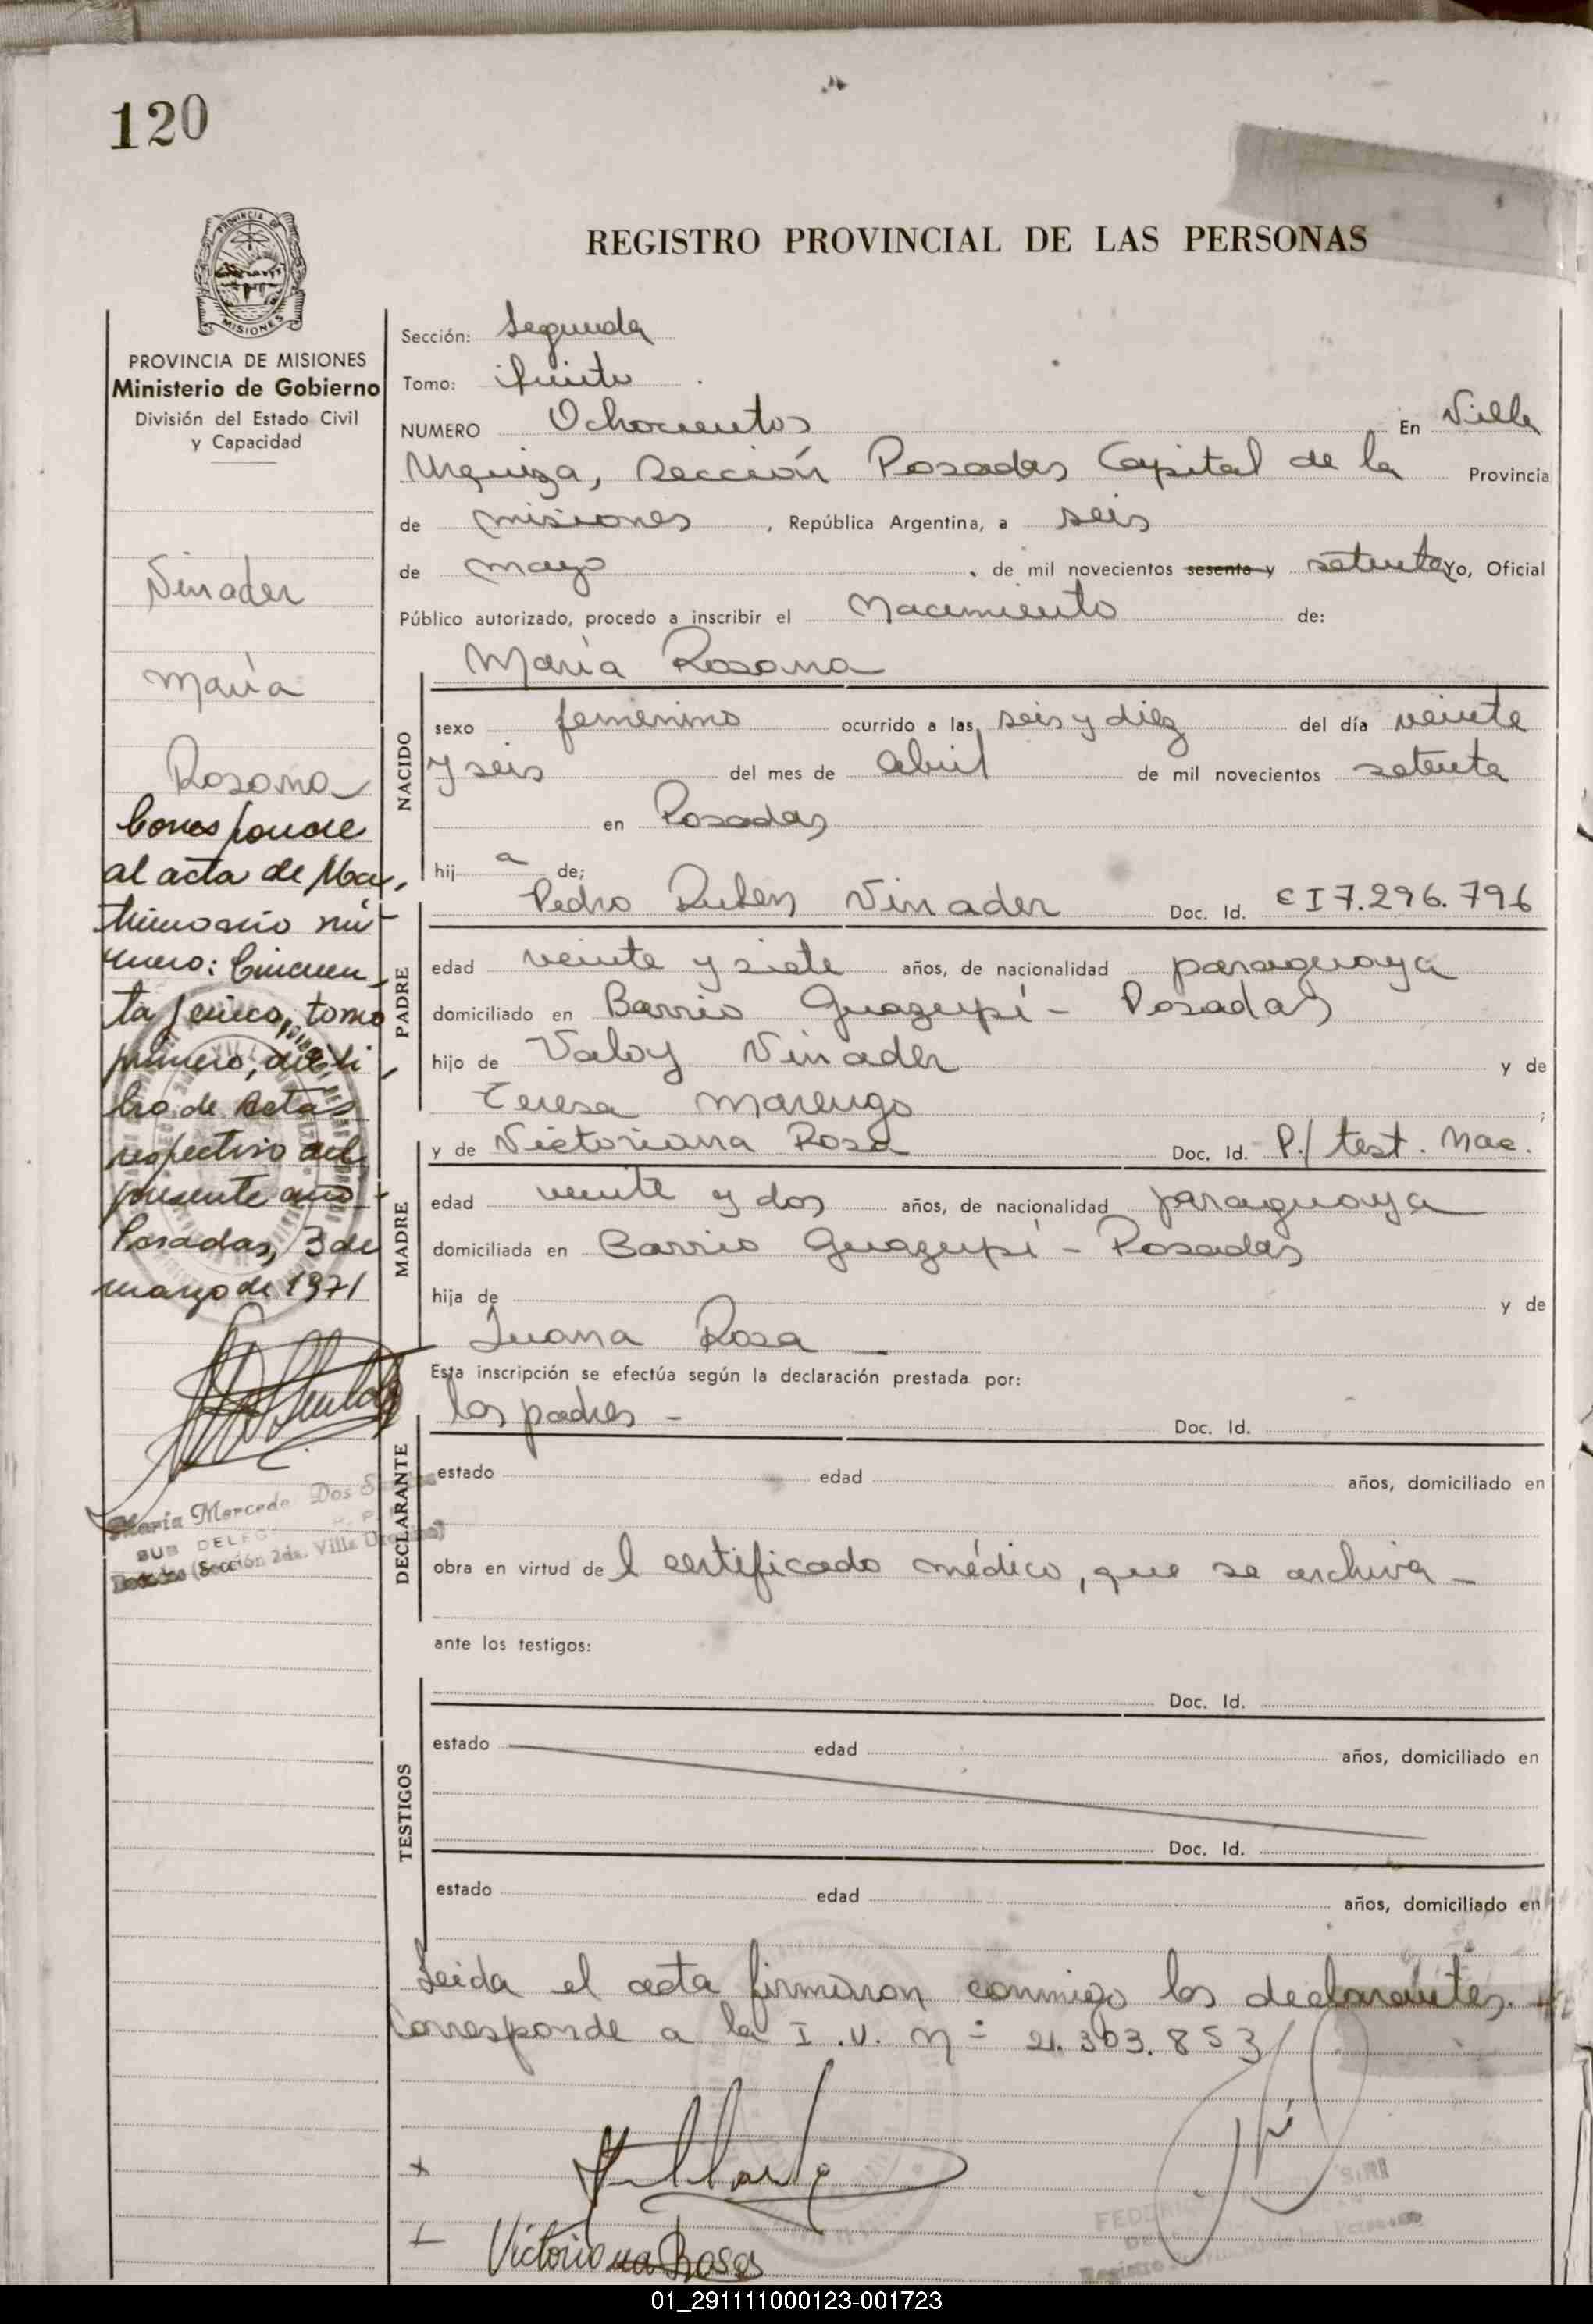 120
PROVINCIA DE
MISIONES
REGISTRO PROVINCIAL DE LAS PERSONAS
PROVINCIA DE MISIONES
Ministerio de Gobierno
División del Estado Civil
y Capacidad
Vinader
María
Rosana
Corresponde
al acta de Ma-
trimonio nú-
mero: Cincuen-
ta y cinco, tomo
primero, del li-
bro de actas
respectivo del
presente año-
Posadas, 3 de
marzo de 1971
Maria Mercede Dos
SUB DELEG
(Sección 2da. Villa Urquiza)
Sección: Segunda
Tomo: Quinto
NUMERO Ochocientos En Villa
Urquiza, Sección Posadas Capital de la Provincia
de misiones, República Argentina, a seis
de mayo de mil novecientos sesenta y setenta Yo, Oficial
Público autorizado, procedo a inscribir el Nacimiento de:
María Rosana
NACIDO
sexo femenino ocurrido a las seis y diez del día veinte
y seis del mes de abril de mil novecientos setenta
en Posadas
hij a de;
PADRE
Pedro Ruben Vinader Doc. Id. CI 7.296.796
edad veinte y siete años, de nacionalidad paraguaya
domiciliado en Barrio Guazupí - Posadas
hijo de Valoy Vinader y de
Teresa Marengo ;
MADRE
y de Victoriana Rosa Doc. Id. P./ test. Nac.
edad veinte y dos años, de nacionalidad paraguaya
domiciliada en Barrio Guazupí - Posadas
hija de y de
Juana Rosa
Esta inscripción se efectúa según la declaración prestada por:
DECLARANTE
los padres - Doc. Id.
estado edad años, domiciliado en
obra en virtud de l certificado médico, que se archiva -
ante los testigos:
TESTIGOS
Doc. Id.
estado edad años, domiciliado en
Doc. Id.
estado edad años, domiciliado en
Leida el acta firmaron conmigo los declarantes.
Corresponde a la I.U. Nº 21.303.853
Victoriana Rosa
01_291111000123-001723